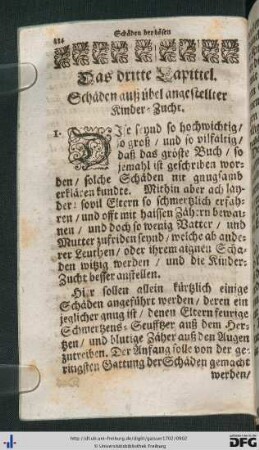 Schäden der bösen
Das dritte Capitel.
Schäden auß übel angestellter
Kinder-Zucht.
1. DIse seynd so hochwichtig /
so groß / und so vilfältig /
daß das gröste Buch / so
jemahl ist geschriben wor-
den / solche Schäden nit gnugsamb
erklären kundte. Mithin aber ach lay-
der: sovil Eltern so schmertzlich erfah-
ren / und offt mit haissen Zähern bewai-
nen / und doch so wenig Vatter / und
Mutter zufriden seynd / welche ab ande-
rer Leuthen / oder ihrem aignen Scha-
den witzig werden / und die Kinder-
Zucht besser anstellen.
Hier sollen allein kürtzlich einige
Schäden angeführt werden / deren ein
jeglicher gnug ist / denen Eltern feurige
Schmertzens-Seufftzer auß dem Her-
tzen / und blutige Zäher auß den Augen
zutreiben. Der Anfang solle von der ge-
ringsten Gattung der Schäden gemacht
werden /
http://dl.ub.uni-freiburg.de/diglit/gassner1702/0902
© Universitätsbibliothek Freiburg
DFG